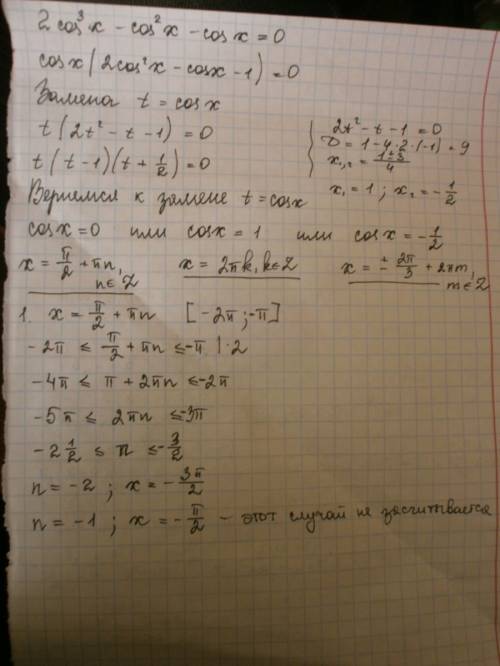 2cos³x - cos²x - cosx = 0
cosx(2cos²x - cosx - 1) = 0
Замена t = cosx
t(2t² - t - 1) = 0
t(t - 1)(t + 1/2) = 0
2t² - t - 1 = 0
D = 1 - 4·2·(-1) = 9
x₁,₂ = (1±3)/4
x₁ = 1; x₂ = -1/2
Вернемся к замене t = cosx
cosx = 0 или cosx = 1 или cosx = -1/2
x = π/2 + πn, n∈Z x = 2πk, k∈Z x = ± 2π/3 + 2πm, m∈Z
1. x = π/2 + πn [-2π; -π]
-2π ≤ π/2 + πn ≤ -π | ·2
-4π ≤ π + 2πn ≤ -2π
-5π ≤ 2πn ≤ -3π
-2 1/2 ≤ n ≤ -3/2
n = -2; x = -3π/2
n = -1; x = -π/2 - этот случай не засчитывается